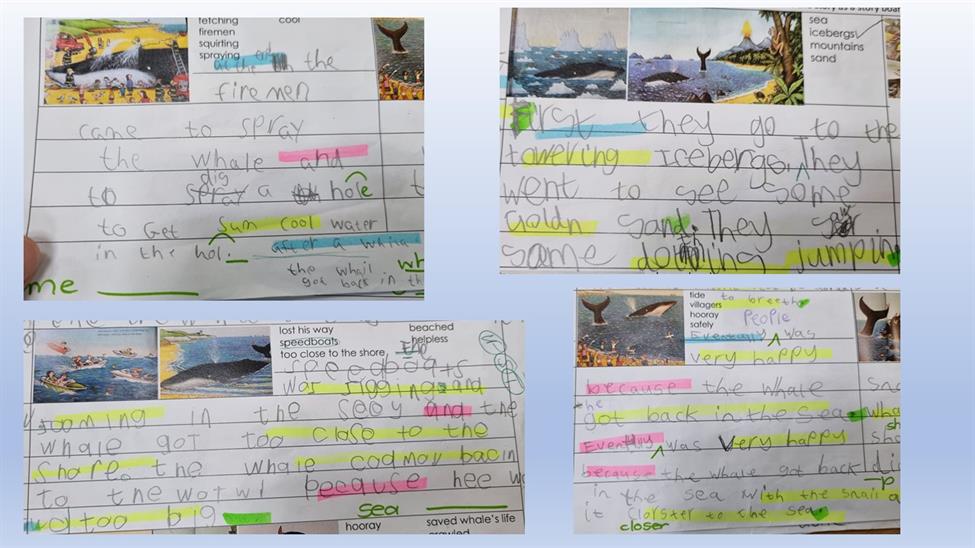 fetching
cool
firemen
squirting
spraying
the
firemen
came to spray
the whale and
dig
to spray a hole
to Get sum cool water
in the hol. after a while
the whail
got back in th
me
wh
sea
icebergs
mountains
sand
First they go to the
towering Icebergs. They
went to see some
Goldn sand. They saw
some dolphing jumpin
lost his way
speedboats
too close to the shore,
beached
helpless
speedboats
was zigging and
zooming in the seey and the
whale got too close to the
shore. the whale cod mov bac in
to the wotwl because hee w
too big
sea
hooray
saved whale's life
crawled
tide
villagers
hooray
safely
to breeth
People
Eventily was
very happy
because the whale
he
got back in the sea
Eventhly was very happy
because the whale got back
in the sea with the snail
it clorster to the sea.
closer